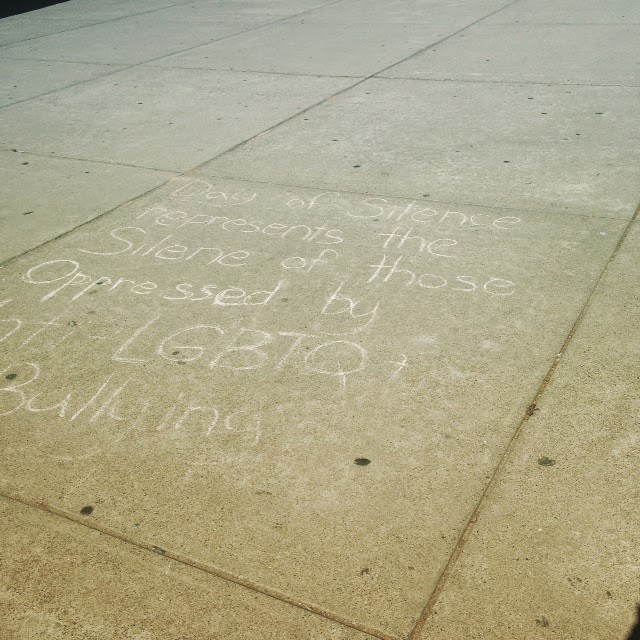 Day of Silence
represents the
Silene of those
Oppressed by
LGBTQ+